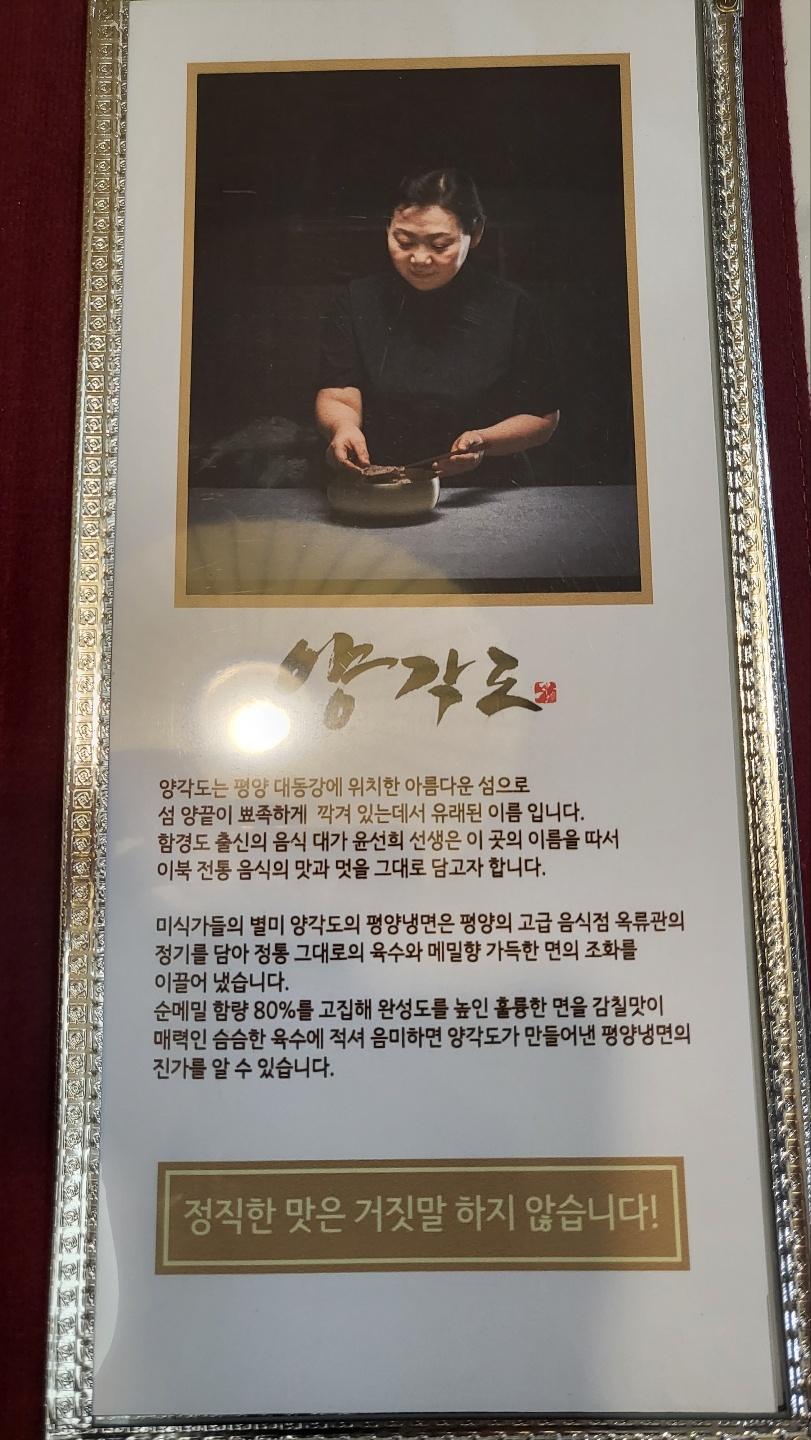 양각도
양각도는 평양 대동강에 위치한 아름다운 섬으로
섬 양끝이 뾰족하게 깍겨 있는데서 유래된 이름 입니다.
함경도 출신의 음식 대가 윤선희 선생은 이 곳의 이름을 따서
이북 전통 음식의 맛과 멋을 그대로 담고자 합니다.
미식가들의 별미 양각도의 평양냉면은 평양의 고급 음식점 옥류관의
정기를 담아 정통 그대로의 육수와 메밀향 가득한 면의 조화를
이끌어 냈습니다.
순메밀 함량 80%를 고집해 완성도를 높인 훌륭한 면을 감칠맛이
매력인 슴슴한 육수에 적셔 음미하면 양각도가 만들어낸 평양냉면의
진가를 알 수 있습니다.
정직한 맛은 거짓말 하지 않습니다!